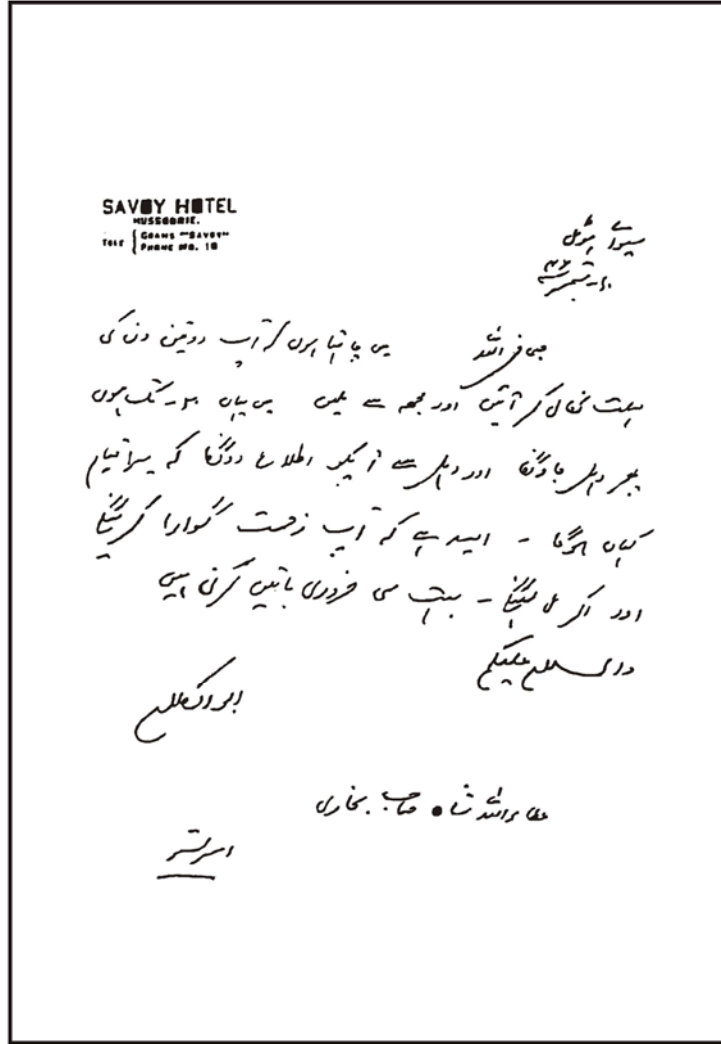 SAVOY HOTEL
MUSSOORIE.
TELE { GRAMS "SAVOY"
PHONE NO. 10
سیوائے ہوٹل
ستمبر
میں چاہتا ہوں کہ آپ دو تین دن کی
مہلت نکال کر آئیں اور مجھ سے ملیں میں یہاں تک ہوں
پھر دہلی جاؤنگا اور دہلی سے آپکو اطلاع دونگا کہ میرا قیام
کہاں ہوگا - امید ہے کہ آپ زحمت گوارا کرینگے
اور آکر مل لینگے - بہت سی ضروری باتیں کرنی ہیں
والسلام علیکم
ابوالکلام
عطاء اللہ شاہ صاحب بخاری
امرتسر